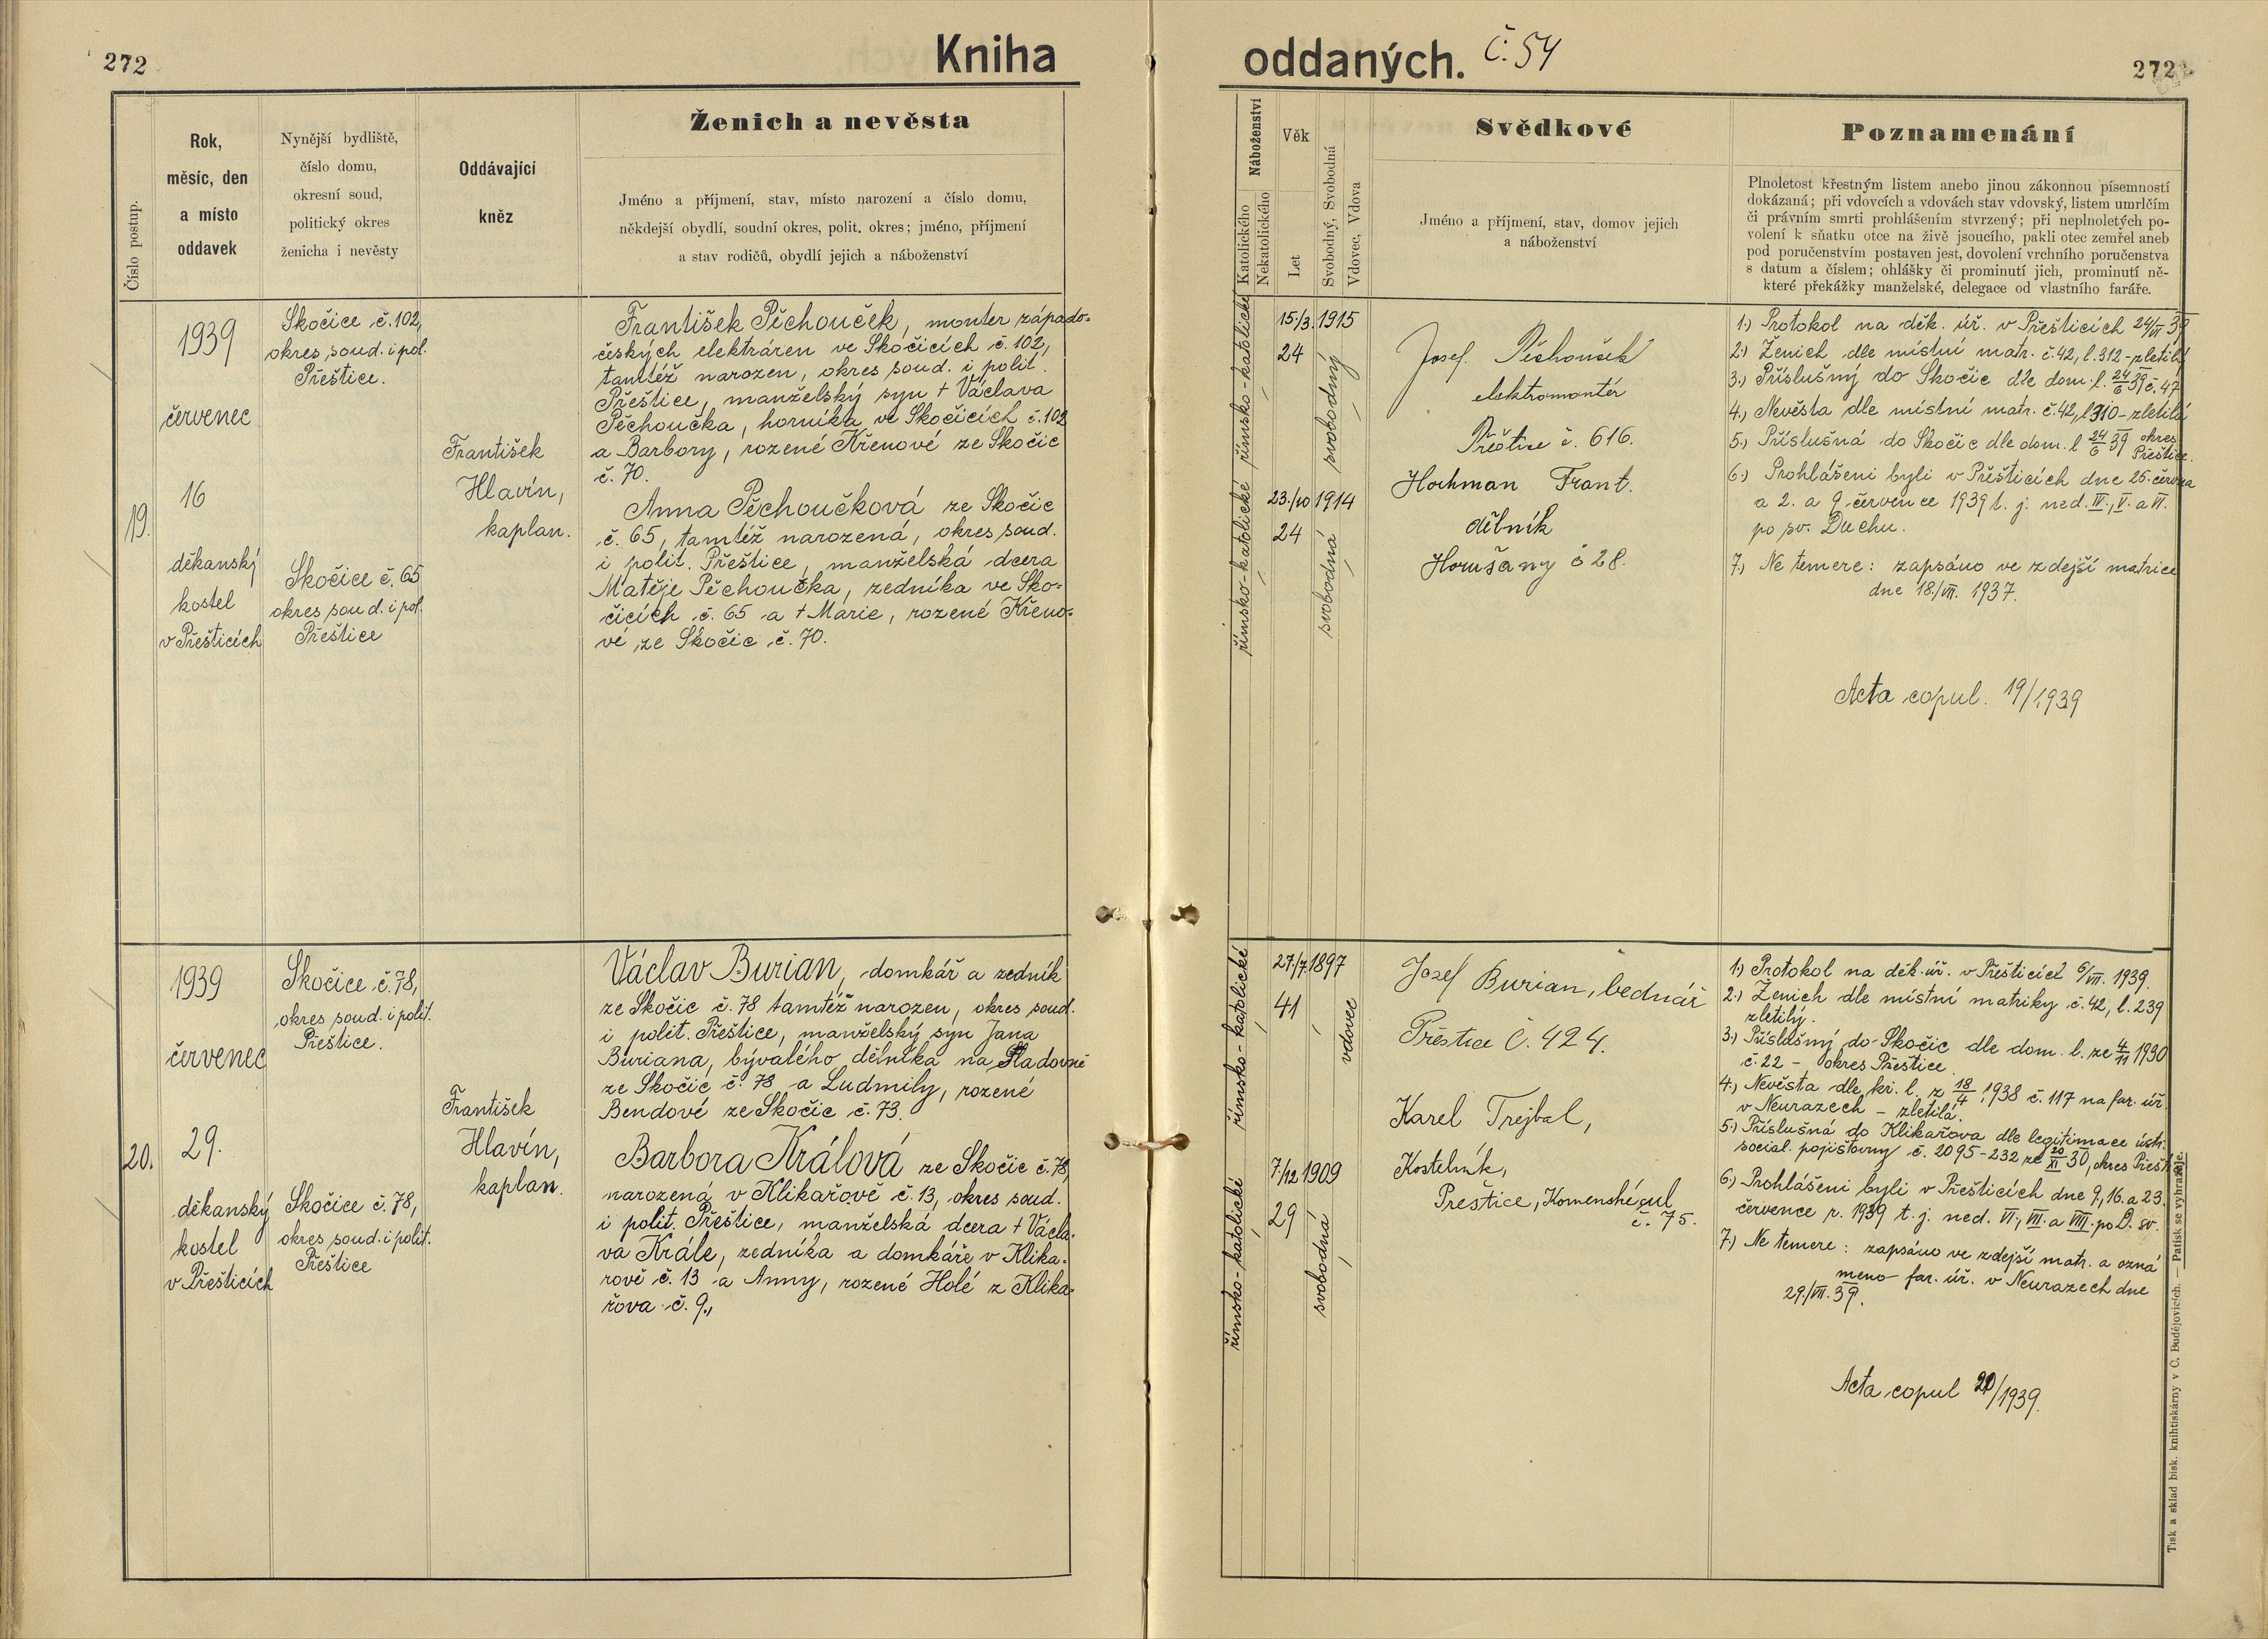 272
Kniha
Číslo postup.
Rok,
měsíc, den
a místo
oddavek
Nynější bydliště,
číslo domu,
okresní soud,
politický okres
ženicha i nevěsty
Oddávající
kněz
Ženich a nevěsta
Jméno a příjmení, stav, místo narození a číslo domu,
někdejší obydlí, soudní okres, polit. okres; jméno, příjmení
a stav rodičů, obydlí jejich a náboženství
19.
1939
červenec
16
děkanský
kostel
v Přešticích
Skočice č. 102,
okres soud. i pol.
Přeštice.
Skočice č. 65
okres soud. i pol.
Přeštice
František
Hlavín,
kaplan.
František Pěchouček, monter západo-
českých elektráren ve Skočicích č. 102,
tamtéž narozen, okres soud. i polit.
Přeštice, manželský syn † Václava
Pěchoučka, horníka ve Skočicích č. 102
a Barbory, rozené Křenové ze Skočic
č. 70.
Anna Pěchoučková ze Skočic
č. 65, tamtéž narozená, okres soud.
i polit. Přeštice, manželská dcera
Matěje Pěchoučka, zedníka ve Sko-
čicích č. 65 a † Marie, rozené Křeno-
vé ze Skočic č. 70.
20.
1939
červenec
29.
děkanský
kostel
v Přešticích
Skočice č. 78,
okres soud. i polit.
Přeštice.
Skočice č. 78,
okres soud. i polit.
Přeštice
František
Hlavín,
kaplan.
Václav Burian, domkář a zedník
ze Skočic č. 78 tamtéž narozen, okres soud.
i polit. Přeštice, manželský syn Jana
Buriana, bývalého dělníka na Sladovně
ze Skočic č. 78 a Ludmily, rozené
Bendové ze Skočic č. 73.
Barbora Králová ze Skočic č. 78,
narozená v Klikařově č. 13, okres soud.
i polit. Přeštice, manželská dcera † Václa-
va Krále, zedníka a domkáře v Klika-
řově č. 13 a Anny, rozené Holé z Klika-
řova č. 9.,
oddaných. Č. 54
272
Náboženství
Katolického
Nekatolického
Věk
Let
Svobodný, Svobodná
Vdovec, Vdova
Svědkové
Jméno a příjmení, stav, domov jejich
a náboženství
Poznamenání
Plnoletost křestným listem anebo jinou zákonnou písemností
dokázaná; při vdovcích a vdovách stav vdovský, listem umrlčím
či právním smrti prohlášením stvrzený; při neplnoletých po-
volení k sňatku otce na živě jsoucího, pakli otec zemřel aneb
pod poručenstvím postaven jest, dovolení vrchního poručenstva
s datum a číslem; ohlášky či prominutí jich, prominutí ně-
které překážky manželské, delegace od vlastního faráře.
římsko-katolické
15/3. 1915
24
svobodný
římsko-katolické
23./10 1914
24
svobodná
Josef Pěchouček
elektromontér
Přeštice č. 616.
Hochman Frant.
dělník
Horušany č 28.
1.) Protokol na děk. úř. v Přešticích 24/VI 39
2.) Ženich dle místní matr. č. 42, l. 312 - zletilý
3.) Příslušný do Skočic dle dom. l. 24/6 39 č. 47
4.) Nevěsta dle místní matr. č. 42, l 310 - zletilá
5.) Příslušná do Skočic dle dom. l 24/6 39 okres
Přeštice.
6.) Prohlášeni byli v Přešticích dne 25. června
a 2. a 9. července 1939 t. j. ned. IV., V. a VI.
po sv. Duchu.
7.) Ne temere: zapsáno ve zdejší matrice
dne 18./VII. 1937.
Acta copul. 19/1939
římsko-katolické
27./7. 1897
41
vdovec
římsko-katolické
7./12 1909
29
svobodná
Josef Burian, bednář
Přeštice č. 424.
Karel Trejbal,
Kostelník,
Přeštice, Komenského ul
č. 75.
1.) Protokol na děk. úř. v Přešticích 6/VII. 1939.
2.) Ženich dle místní matriky č. 42, l. 239
zletilý.
3.) Příslušný do Skočic dle dom. l. ze 4/11 1930
č. 22 - okres Přeštice
4.) Nevěsta dle kř. l. z 18/4 1938 č. 117 na far. úř.
v Neurazech - zletilá.
5.) Příslušná do Klikařova dle legitimace ústř.
social. pojišťovny č. 2095-232 ze 20/XI 30, okres Přešt.
6.) Prohlášeni byli v Přešticích dne 9, 16. a 23.
července r. 1939 t. j. ned. VI., VII. a VIII. po D. sv.
7.) Ne temere: zapsáno ve zdejší matr. a ozná
meno far. úř. v Neurazech dne
29./VII. 39.
Acta copul 20/1939.
Tisk a sklad bisk. knihtiskárny v Č. Budějovicích. — Patisk se vyhražuje.